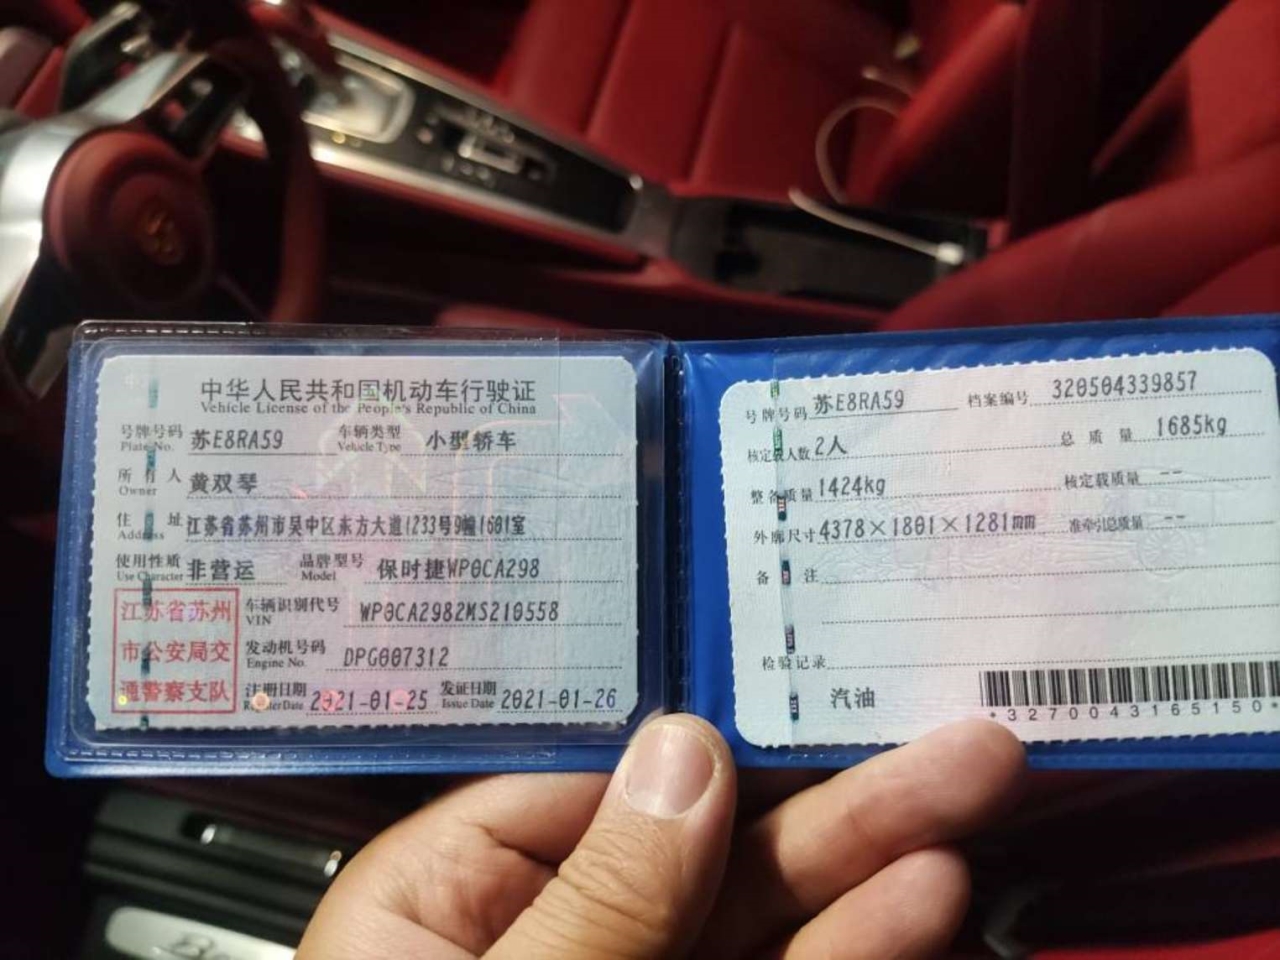 中华人民共和国机动车行驶证
Vehicle License of the People's Republic of China
号牌号码 苏E8RA59 车辆类型 小型轿车
Plate No. Vehicle Type
所有人 黄双琴
Owner
住址 江苏省苏州市吴中区东方大道1233号9幢1601室
Address
使用性质 非营运 品牌型号 保时捷WP0CA298
Use Character Model
江苏省苏州
市公安局交
通警察支队
车辆识别代号 WP0CA2982MS210558
VIN
发动机号码 DPG007312
Engine No.
注册日期 2021-01-25 发证日期 2021-01-26
Register Date Issue Date
号牌号码 苏E8RA59 档案编号 320504339857
核定载人数 2人 总质量 1685kg
整备质量 1424kg 核定载质量 --
外廓尺寸 4378×1801×1281mm 准牵引总质量 --
备注
检验记录
汽油
*3270043165150*